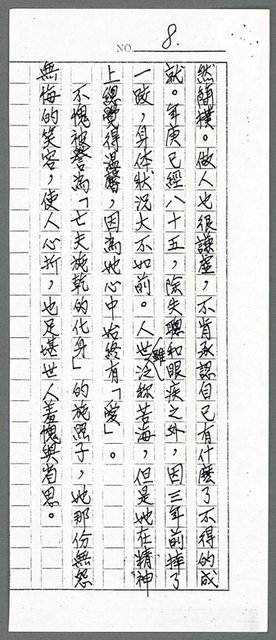 NO. 8.
然簡樸。做人也很謙虛，不肯承認自己有什麼了不得的成
就。年庚已經八十五，除失聰和眼疾之外，因三年前摔了
一跤，身体狀況大不如前。人世雖泛称苦海，但是她在精神
上總覺得溫馨，因為她心中始終有「愛」。
不愧被譽為「亡夫施乾的化身」的施照子，她那份無怨
無悔的笑容，使人心折，也足堪世人羞愧與省思。